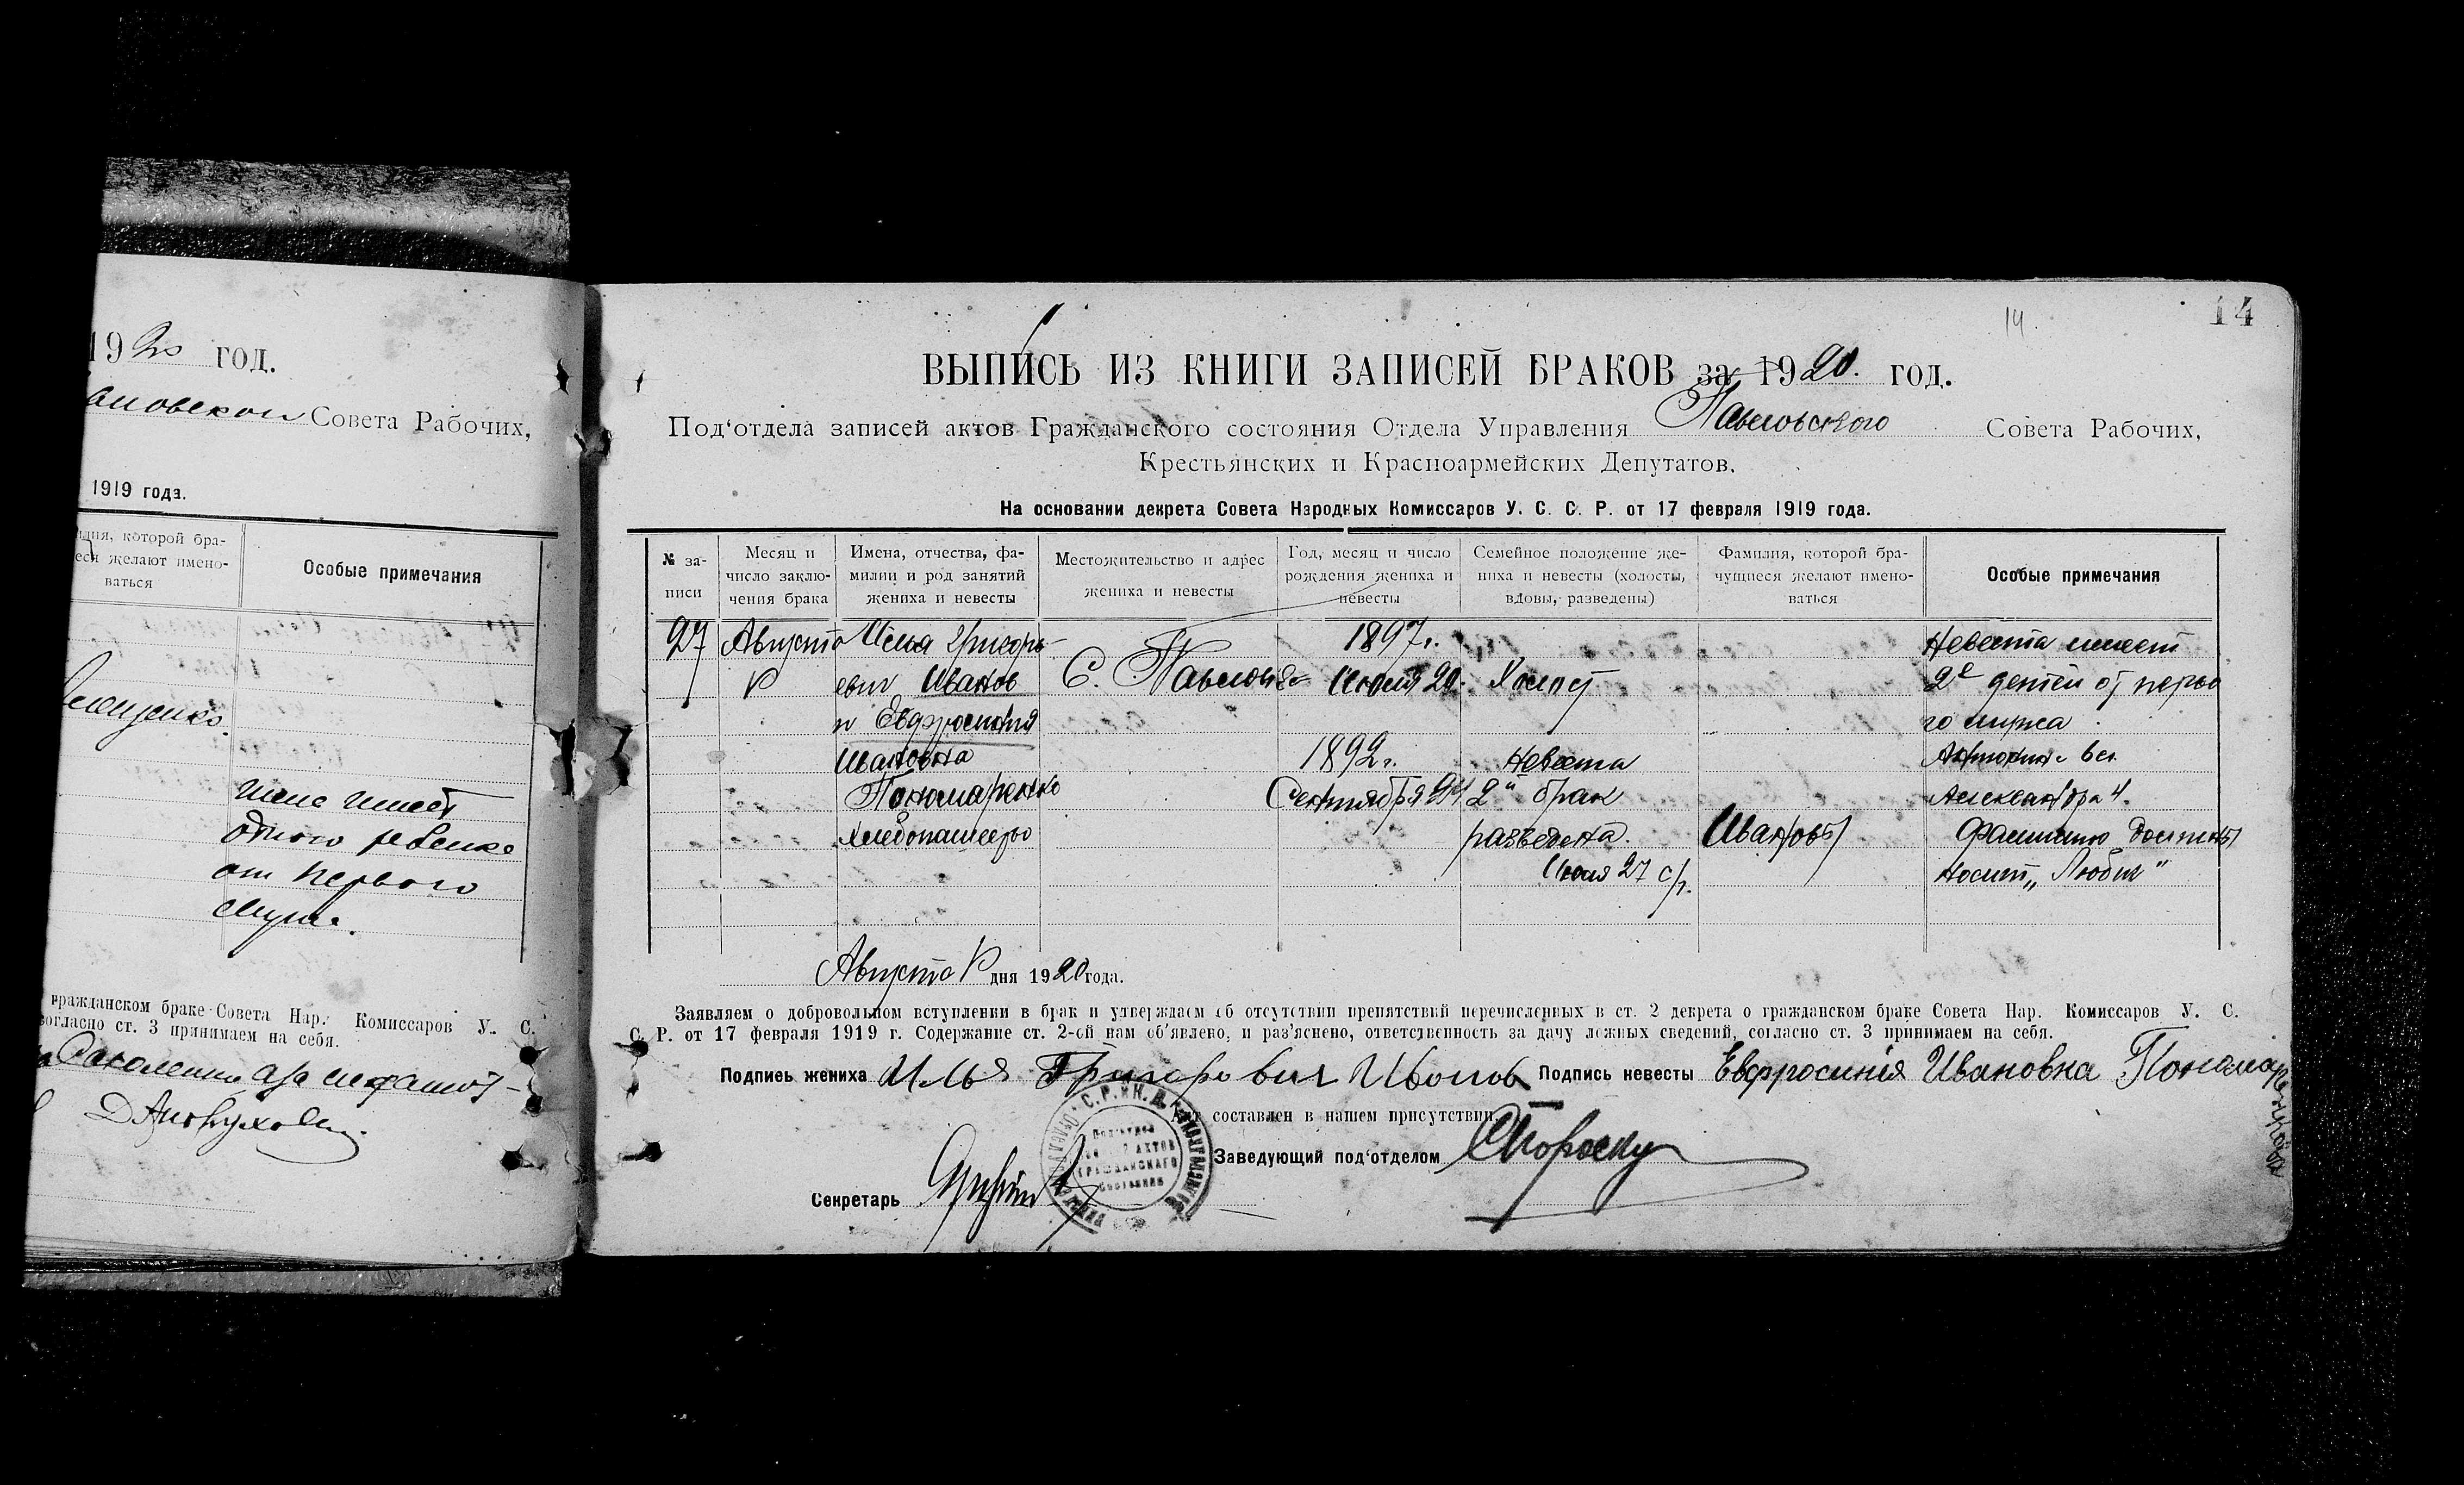 1920 год.
Совета Рабочих,
1919 года.
которой бра-
желают имено-
ваться
Особые примечания
имеет
одного ребенка
от первого
мужа.
гражданском браке Совета Нар. Комиссаров У. С.
согласно ст. 3 принимаем на себя.
14.
14
ВЫПИСЬ ИЗ КНИГИ ЗАПИСЕЙ БРАКОВ за 1920. год.
Под‘отдела записей актов Гражданского состояния Отдела Управления Павловского Совета Рабочих,
Крестьянских и Красноармейских Депутатов.
На основании декрета Совета Народных Комиссаров У. С. С. Р. от 17 февраля 1919 года.
№ за-
писи
Месяц и
число заклю-
чения брака
Имена, отчества, фа-
милии и род занятий
жениха и невесты
Местожительство и адрес
жениха и невесты
Год, месяц и число
рождения жениха и
невесты
Семейное положение же-
ниха и невесты (холосты,
вдовы, разведены)
Фамилия, которой бра-
чущиеся желают имено-
ваться
Особые примечания
Августа
Илья Григорь-
евич Иванов
и Евфросиния
Ивановна
Пономаренко
хлебопашество
С. Павловка
1897 г.
Июля 20.
1892 г.
Сентября 24
Холост
Невеста
2й брак
разведена.
Июля 27 с/г.
Ивановы
Невеста имеет
2е детей от перво
го мужа
Антонина 6 л.
Александра 4.
Фамилию должны
носит „Любич“
Августа дня 1920 года.
Заявляем о добровольном вступлении в брак и утверждаем об отсутствии препятствий перечисленных в ст. 2 декрета о гражданском браке Совета Нар. Комиссаров У. С.
С. Р. от 17 февраля 1919 г. Содержание ст. 2-ой нам об‘явлено, и раз‘яснено, ответственность за дачу ложных сведений, согласно ст. 3 принимаем на себя.
Подпись жениха Илья Григорович Иванов Подпись невесты Евфросинія Ивановна Пономаренкова
Акт составлен в нашем присутствии.
Заведующий под‘отделом
Секретарь
АКТОВ
ГРАЖДАНСКАГО
СОСТОЯНИЯ